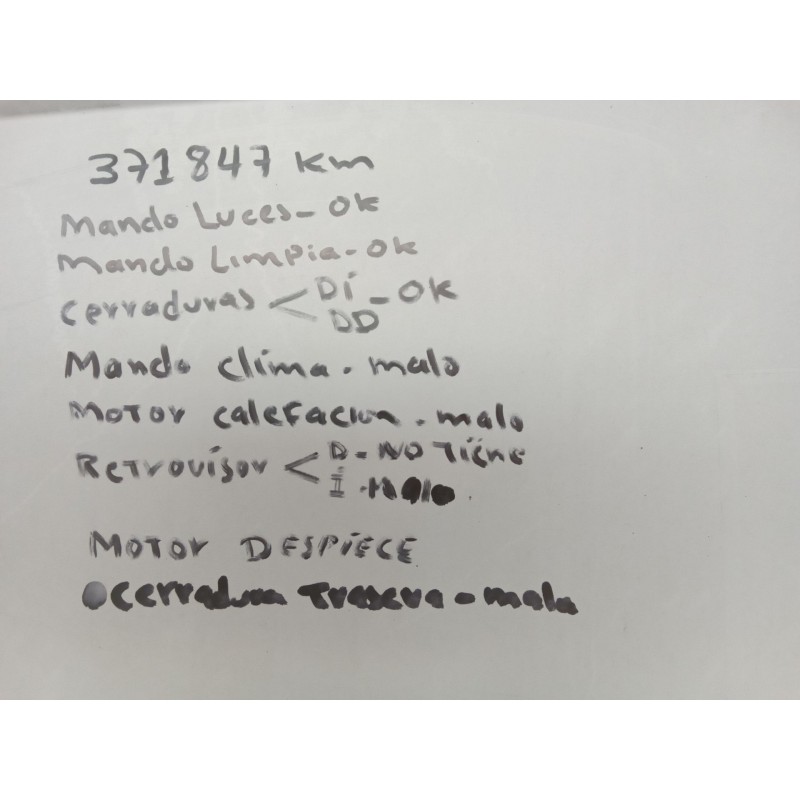 371847 Km
Mando Luces - OK
Mando Limpia - OK
Cerraduras < DI - OK
DD
Mando clima . malo
Motor calefacion . malo
Retrovisor < D - NO Tiene
I - Malo
MOTOR DESPIECE
Cerradura Trasera - mala